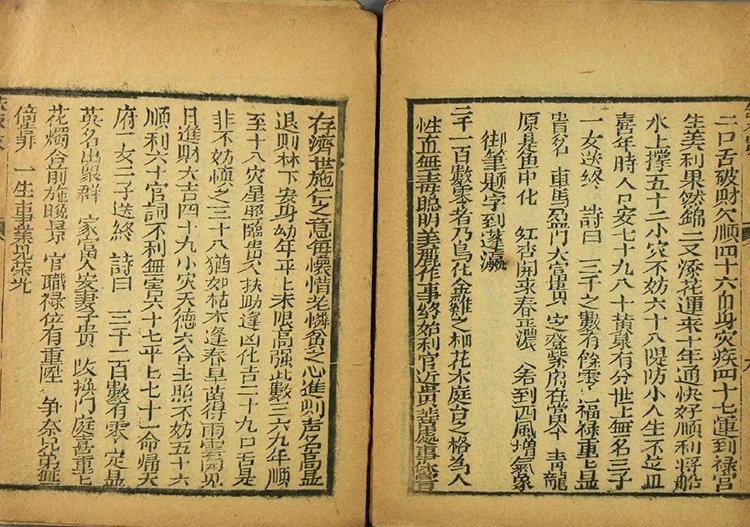 二口舌破財欠順四十六自身灾疾四十七運到祿宮
生美利果然錦上又添花運來十年通快好順利將船
水上撑五十二小灾不妨六十八隄防小人生不足皿
喜年時人口安七十九八十黃泉有分世上無名三子
一女送終 詩曰 三千之數有餘零 福祿重重显
貴名 車馬盈門大富貴 定登紫府在當今 青龍
原是魚中化 紅杏開來春正濃 若到西風增氣象
御筆題字到蓬瀛
二千一百數零者乃烏化金雞之相花木庭台之格為人
性血無毒聰明美麗作事終始利官近貴善處事
存濟世施仁之意每懷惜老憐貧之心進則声名高显
退則林下安身幼年平上末限高強此數三六九年順
至十八灾星照臨貴人扶助逢凶化吉二十九口舌是
非不妨順之三十八猶如枯木逢春旱苗得雨雲開見
日進財大吉四十九小灾天德六合上照不妨五十六
順利六十官詞不利無害六十七平上七十一命歸天
府一女二子送終 詩曰 三千二百數有零 定显
英名出眾群 家富人安妻子貴 改換門庭喜重上
花燭台前施晚景 官職祿位有重陞 爭奈兄弟無
倚靠 一生事業見榮光